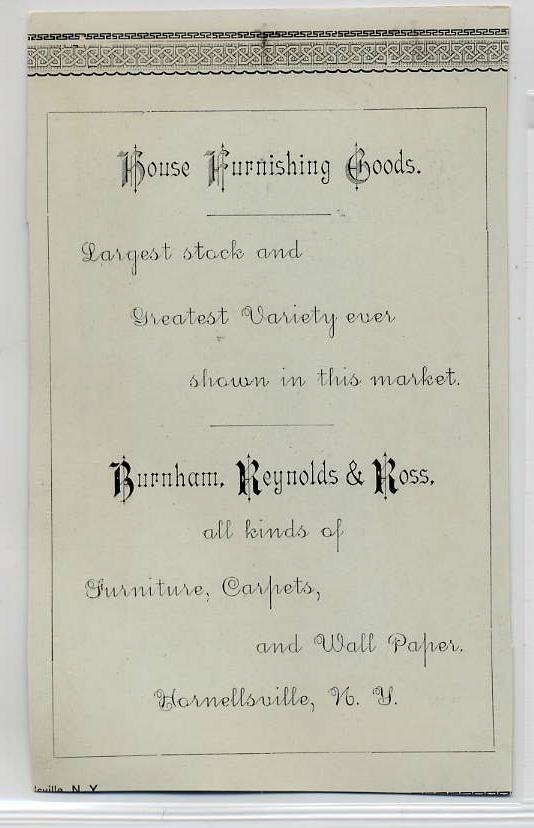 House Furnishing Goods.
Largest stock and
Greatest Variety ever
shown in this market.
Burnham, Reynolds & Ross,
all kinds of
Furniture, Carpets,
and Wall Paper.
Hornellsville, N. Y.
N. Y.